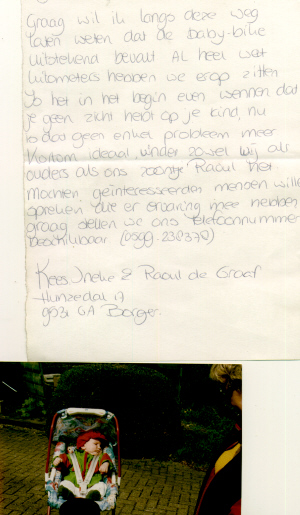 Graag wil ik langs deze weg
laten weten dat de baby-bike
uitstekend bevalt AL heel wat
kilometers hebben we erop zitten
Is het in het begin even wennen dat
je geen zicht hebt op je kind, nu
is dat geen enkel probleem meer
Kortom ideaal, vinden zowel wij als
ouders als ons zoontje Raoul het
Mochten geïnteresseerden mensen wille
spreken die er ervaring mee hebben,
graag stellen we ons telefoonnummer
beschikbaar (0599-230370)
Kees Ineke & Raoul de Graaf
Hunzedal 17
9531 GA Borger.